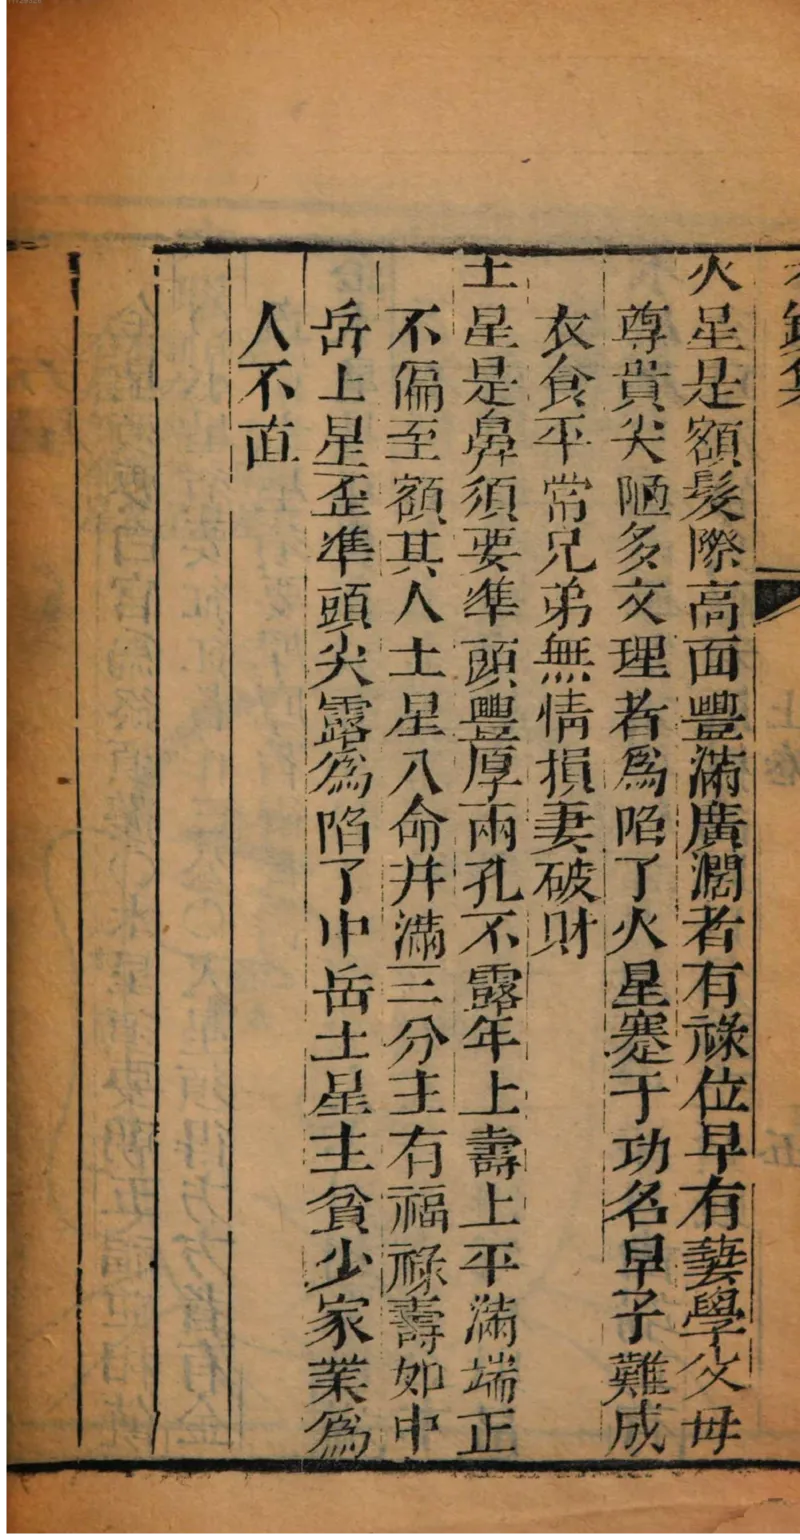 火星是額髮際高面豐滿廣濶者有祿位早有藝學父母
尊貴尖陋多文理者為陷了火星蹇于功名早子難成
衣食平常兄弟無情損妻破財
土星是鼻須要準頭豐厚兩孔不露年上壽上平滿端正
不偏至額其人土星入命井滿三分主有福祿壽如中
岳土星歪準頭尖露為陷了中岳土星主貧少家業為
人不直